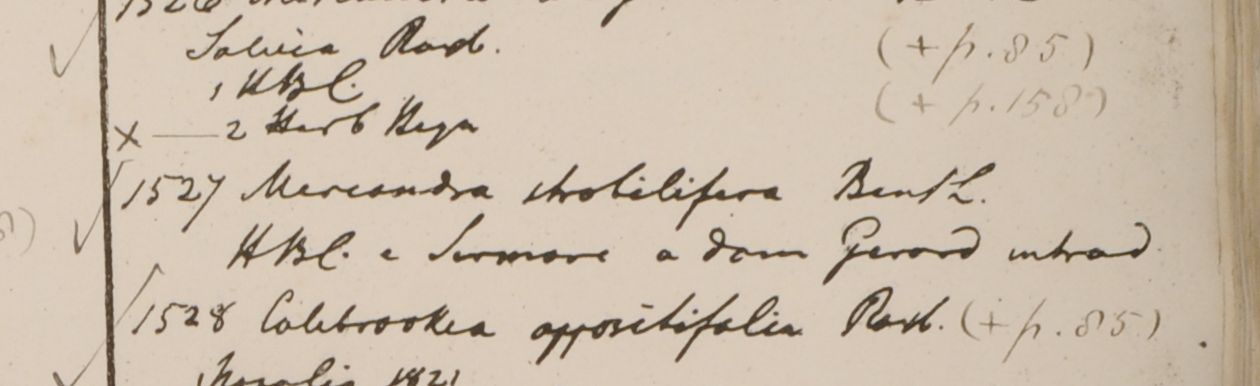 1526
Salvia Roxb. (+ p. 85)
1 HBC. (+ p. 158)
x — 2 Herb Heyn
1527 Mereandra strobilifera Benth.
HBC. e Sirmore a dom Gerard introd
1528 Colebrookea oppositifolia Roxb. (+ p. 85)
Noralia 1821